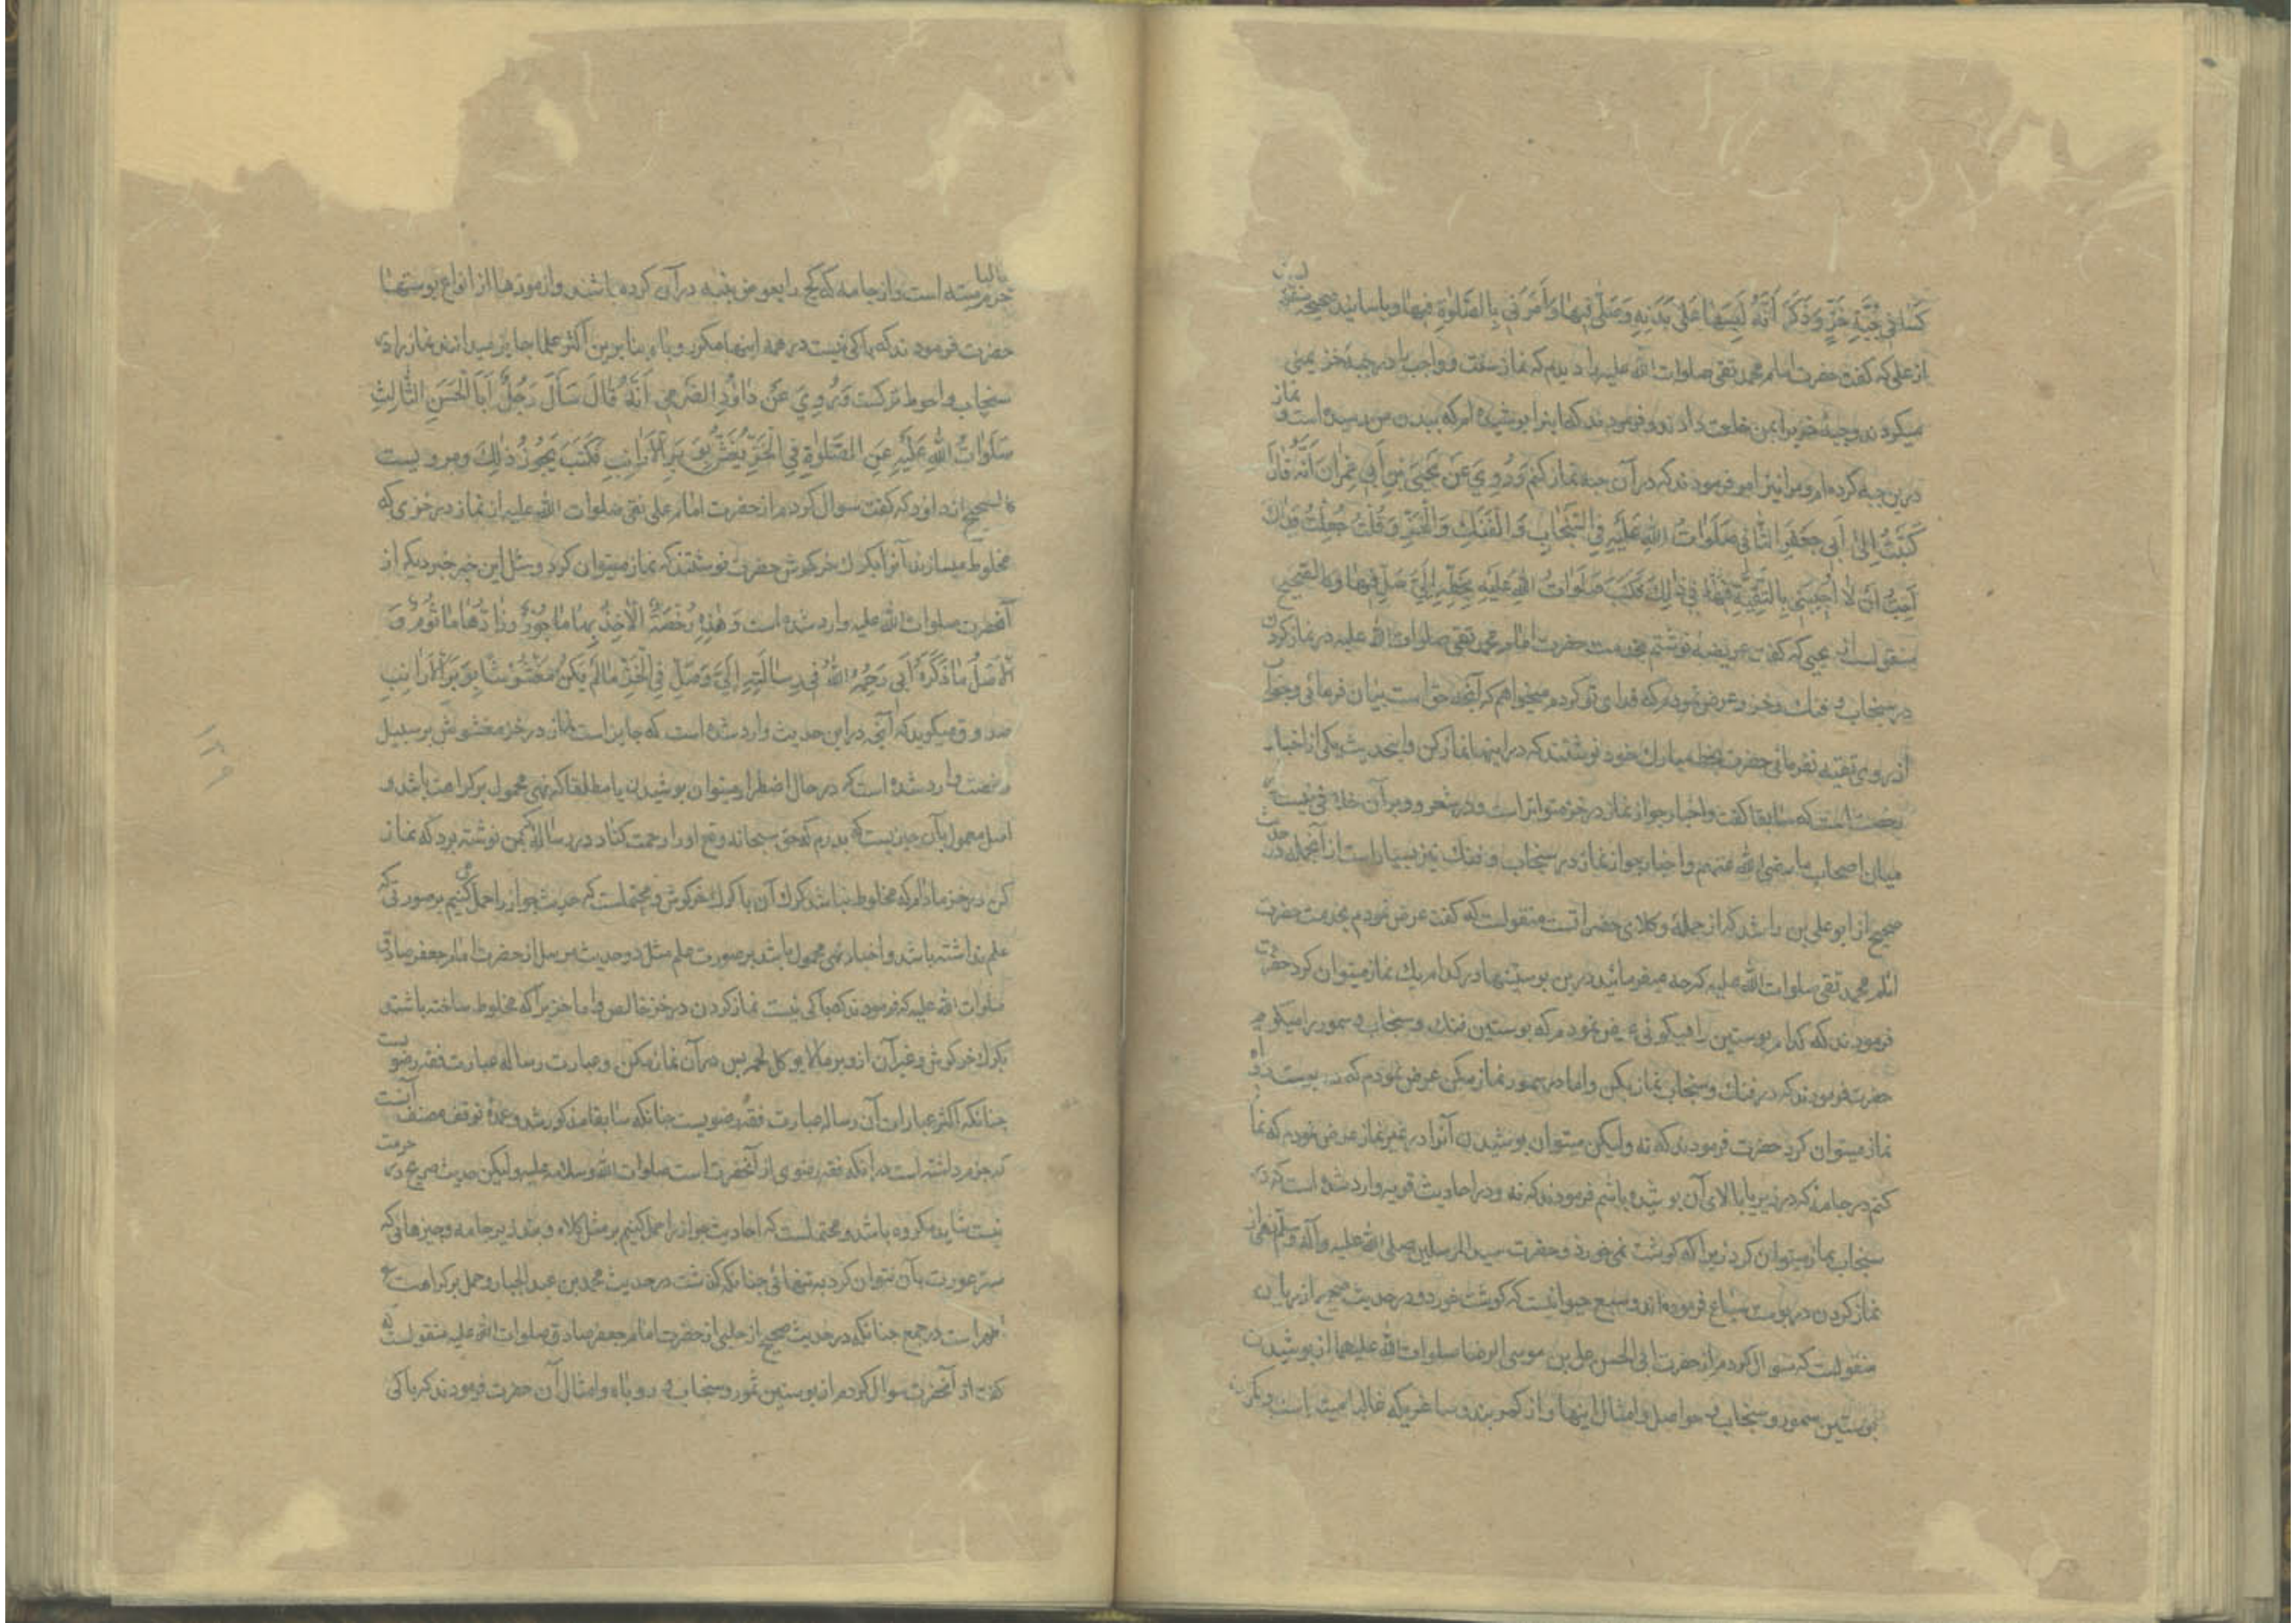 كساني جبة خز وذكر أنه لبسها على بدنه وصلى فيها وأمرني بالصلوة فيها وباسانيد صحيحه منقولست
از على كه كفت حضرت امام محمد تقى صلوات الله عليه را ديدم كه نماز سنت و واجب را در جبه خز يمنى
ميكردند وجبه خز را بمن خلعت دادند وفرمودند كه اينرا پوشيده‌ام كه ببدن من رسيده است و نماز
درين جبه كرده‌ام ومرا نيز امر فرمودند كه در آن جبه نماز كنم وَرُوِيَ عَن يَحيَى بنِ أَبي عِمرانَ أنَّهُ قالَ
كَتَبتُ إلى أبي جعفر الثاني صلوات الله عليه في السنجاب والفنك والخز وقلت جعلت فداك
أحب أن لا تجيبني بالتقية في ذلك فكتب صلوات الله عليه بخطه إليّ صل فيها وكالصحيح
منقولست از يحيى كه كفت عريضه نوشتم بخدمت حضرت امام محمد تقى صلوات الله عليه در نماز كردن
در سنجاب و فنك وخز وعرض نمودم كه فداى تو كردم ميخواهم كه آنچه حق است بيان فرمائى وجواب
از روى تقيه نفرمائى حضرت بخط مبارك خود نوشتند كه در اينها نماز كن واينحديث يكى از اخبار
كه سابقا كفت واخبار جواز نماز در خز متواتر است ودر شعر و وبر آن خلافى نيست
ميان اصحاب ما رضى الله عنهم واخبار جواز نماز در سنجاب و فنك نيز بسيار است از آنجمله در حديث
صحيح از ابو على بن راشد كه از جمله وكلاى حضراتست منقولست كه كفت عرض نمودم بخدمت حضرت
امام محمد تقى صلوات الله عليه كه چه ميفرمائيد درين پوستينها در كدام يك نماز ميتوان كرد حضرت
فرمودند كه كدام پوستين را ميكوئى عرض نمودم كه پوستين فنك وسنجاب و سمور را ميكويم
حضرت فرمودند كه در فنك وسنجاب نماز بكن واما در سمور نماز مكن عرض نمودم كه در پوست روباه
نماز ميتوان كرد حضرت فرمودند كه نه وليكن ميتوان پوشيدن آنرا در غير نماز عرض نمودم كه نماز
كنم در جامهٔ كه در زير يا بالاى آن پوشيده باشم فرمودند كه نه ودر احاديث قويه وارد شده است كه در
سنجاب نماز ميتوان كرد زيرا كه كوشت نمى‌خورد وحضرت سيد المرسلين صلى الله عليه وآله وسلم نهى از
نماز كردن در پوست سباع فرموده‌اند وسبع حيوانيست كه كوشت خورد ودر حديث صحيح از ريان
منقولست كه سوال كردم از حضرت ابى الحسن على بن موسى الرضا صلوات الله عليهما از پوشيدن
پوستين سمور و سنجاب و حواصل وامثال اينها واز كمربند
است واز جامه كه كج را بعوض پنبه در آن كرده باشند واز موزها از انواع پوستها
حضرت فرمودند كه باكى نيست در همه اينها مكر روباه بنا برين اكثر علما جايز ميدانند نماز را در
سنجاب واحوط تركست وَرُوِيَ عَن داوُدَ الصَّرمِي أنَّهُ قالَ سَألَ رَجُلٌ أبَا الحَسَنِ الثّالِثِ
صَلَواتُ اللهِ عَلَيهِ عَنِ الصَّلوةِ فِي الخَزِّ يُغَشُّ بِوَبَرِ الأرانِبِ فَكَتَبَ يَجُوزُ ذلِكَ ومرويست
كالصحيح از داود كه كفت سوال كردم از حضرت امام على نقى صلوات الله عليه از نماز در خزى كه
مخلوط ميسازند آنرا بكرك خركوش حضرت نوشتند كه نماز ميتوان كرد ومثل اين خبر خبر ديكر از
آنحضرت صلوات الله عليه وارد شده است وَهذِهِ رُخصَةٌ الآخِذُ بِها مَأجُورٌ ورادُّها مَأثُومٌ وَ
الأصلُ ما ذَكَرَهُ أبي رَحِمَهُ اللهُ في رِسالَتِهِ إلَيَّ وَصَلِّ فِي الخَزِّ ما لَم يَكُن مَغشُوشًا بِوَبَرِ الأرانِبِ
صدوق ميكويد كه آنچه در اين حديث وارد شده است كه جايز است نماز در خز مغشوش بر سبيل
رخصت وارد شده است كه در حال اضطرار ميتوان پوشيدن يا مطلقا كه نهى محمول بر كراهت باشد و
اصل معمول بآن چيزيست كه پدرم كه حق سبحانه وتع او را رحمت كناد در رساله كه بمن نوشته بود كه نماز
كن در خز مادام كه مخلوط نباشد كرك آن با كرك خركوش و محتملست كه حديث جواز را حمل كنيم بر صورتى كه
علم نداشته باشد واخبار نهى محمول باشد بر صورت علم مثل دو حديث مرسل از حضرت امام جعفر صادق
صلوات الله عليه كه فرمودند كه باكى نيست نماز كردن در خز خالص واما خزيرا كه مخلوط ساخته باشند
بكرك خركوش وغير آن از وبر ما لا يوكل لحمه پس در آن نماز مكن وعبارت رساله عبارت فقه رضويست
چنانكه اكثر عبارات آن رساله عبارت فقه رضويست چنانكه سابقا مذكور شد وعمدهٔ توقف مصنف آنست
كه جزم داشته است بر آنكه فقه رضوى از آنحضرت است صلوات الله وسلامه عليه وليكن حديث صريح در حرمت
نيست شايد مكروه باشد ومحتملست كه احاديث جواز را حمل كنيم بر مثل كلاه و بند زير جامه وچيزهائى كه
ستر عورت بآن نتوان كرد به تنهائى چنانكه كذشت در حديث محمد بن عبد الجبار وحمل بر كراهت
اظهر است در جمع چنانكه در حديث صحيح از حلبى از حضرت امام جعفر صادق صلوات الله عليه منقولست كه
كفت از آنحضرت سوال كردم از پوستين سمور و سنجاب و روباه وامثال آن حضرت فرمودند كه باكى
١٣٩